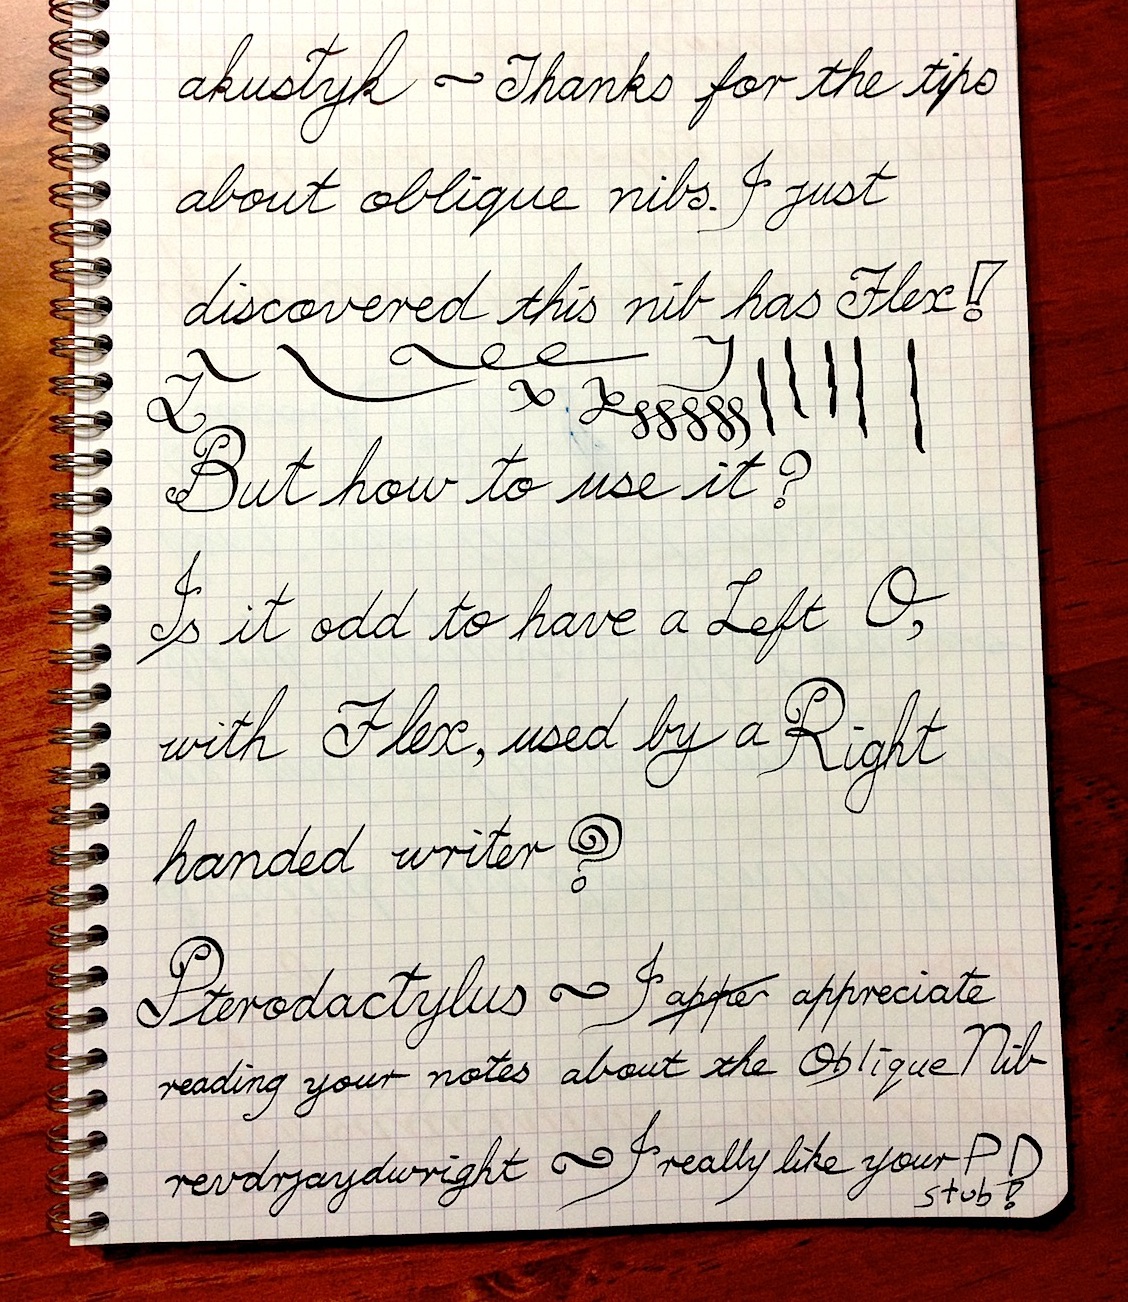 akustyk ~ Thanks for the tips
about oblique nibs. I just
discovered this nib has Flex!
But how to use it?
Is it odd to have a Left O,
with Flex, used by a Right
handed writer?
Pterodactylus ~ I appre appreciate
reading your notes about the Oblique Nib
revdrjaydwright ~ I really like your PD
stub!